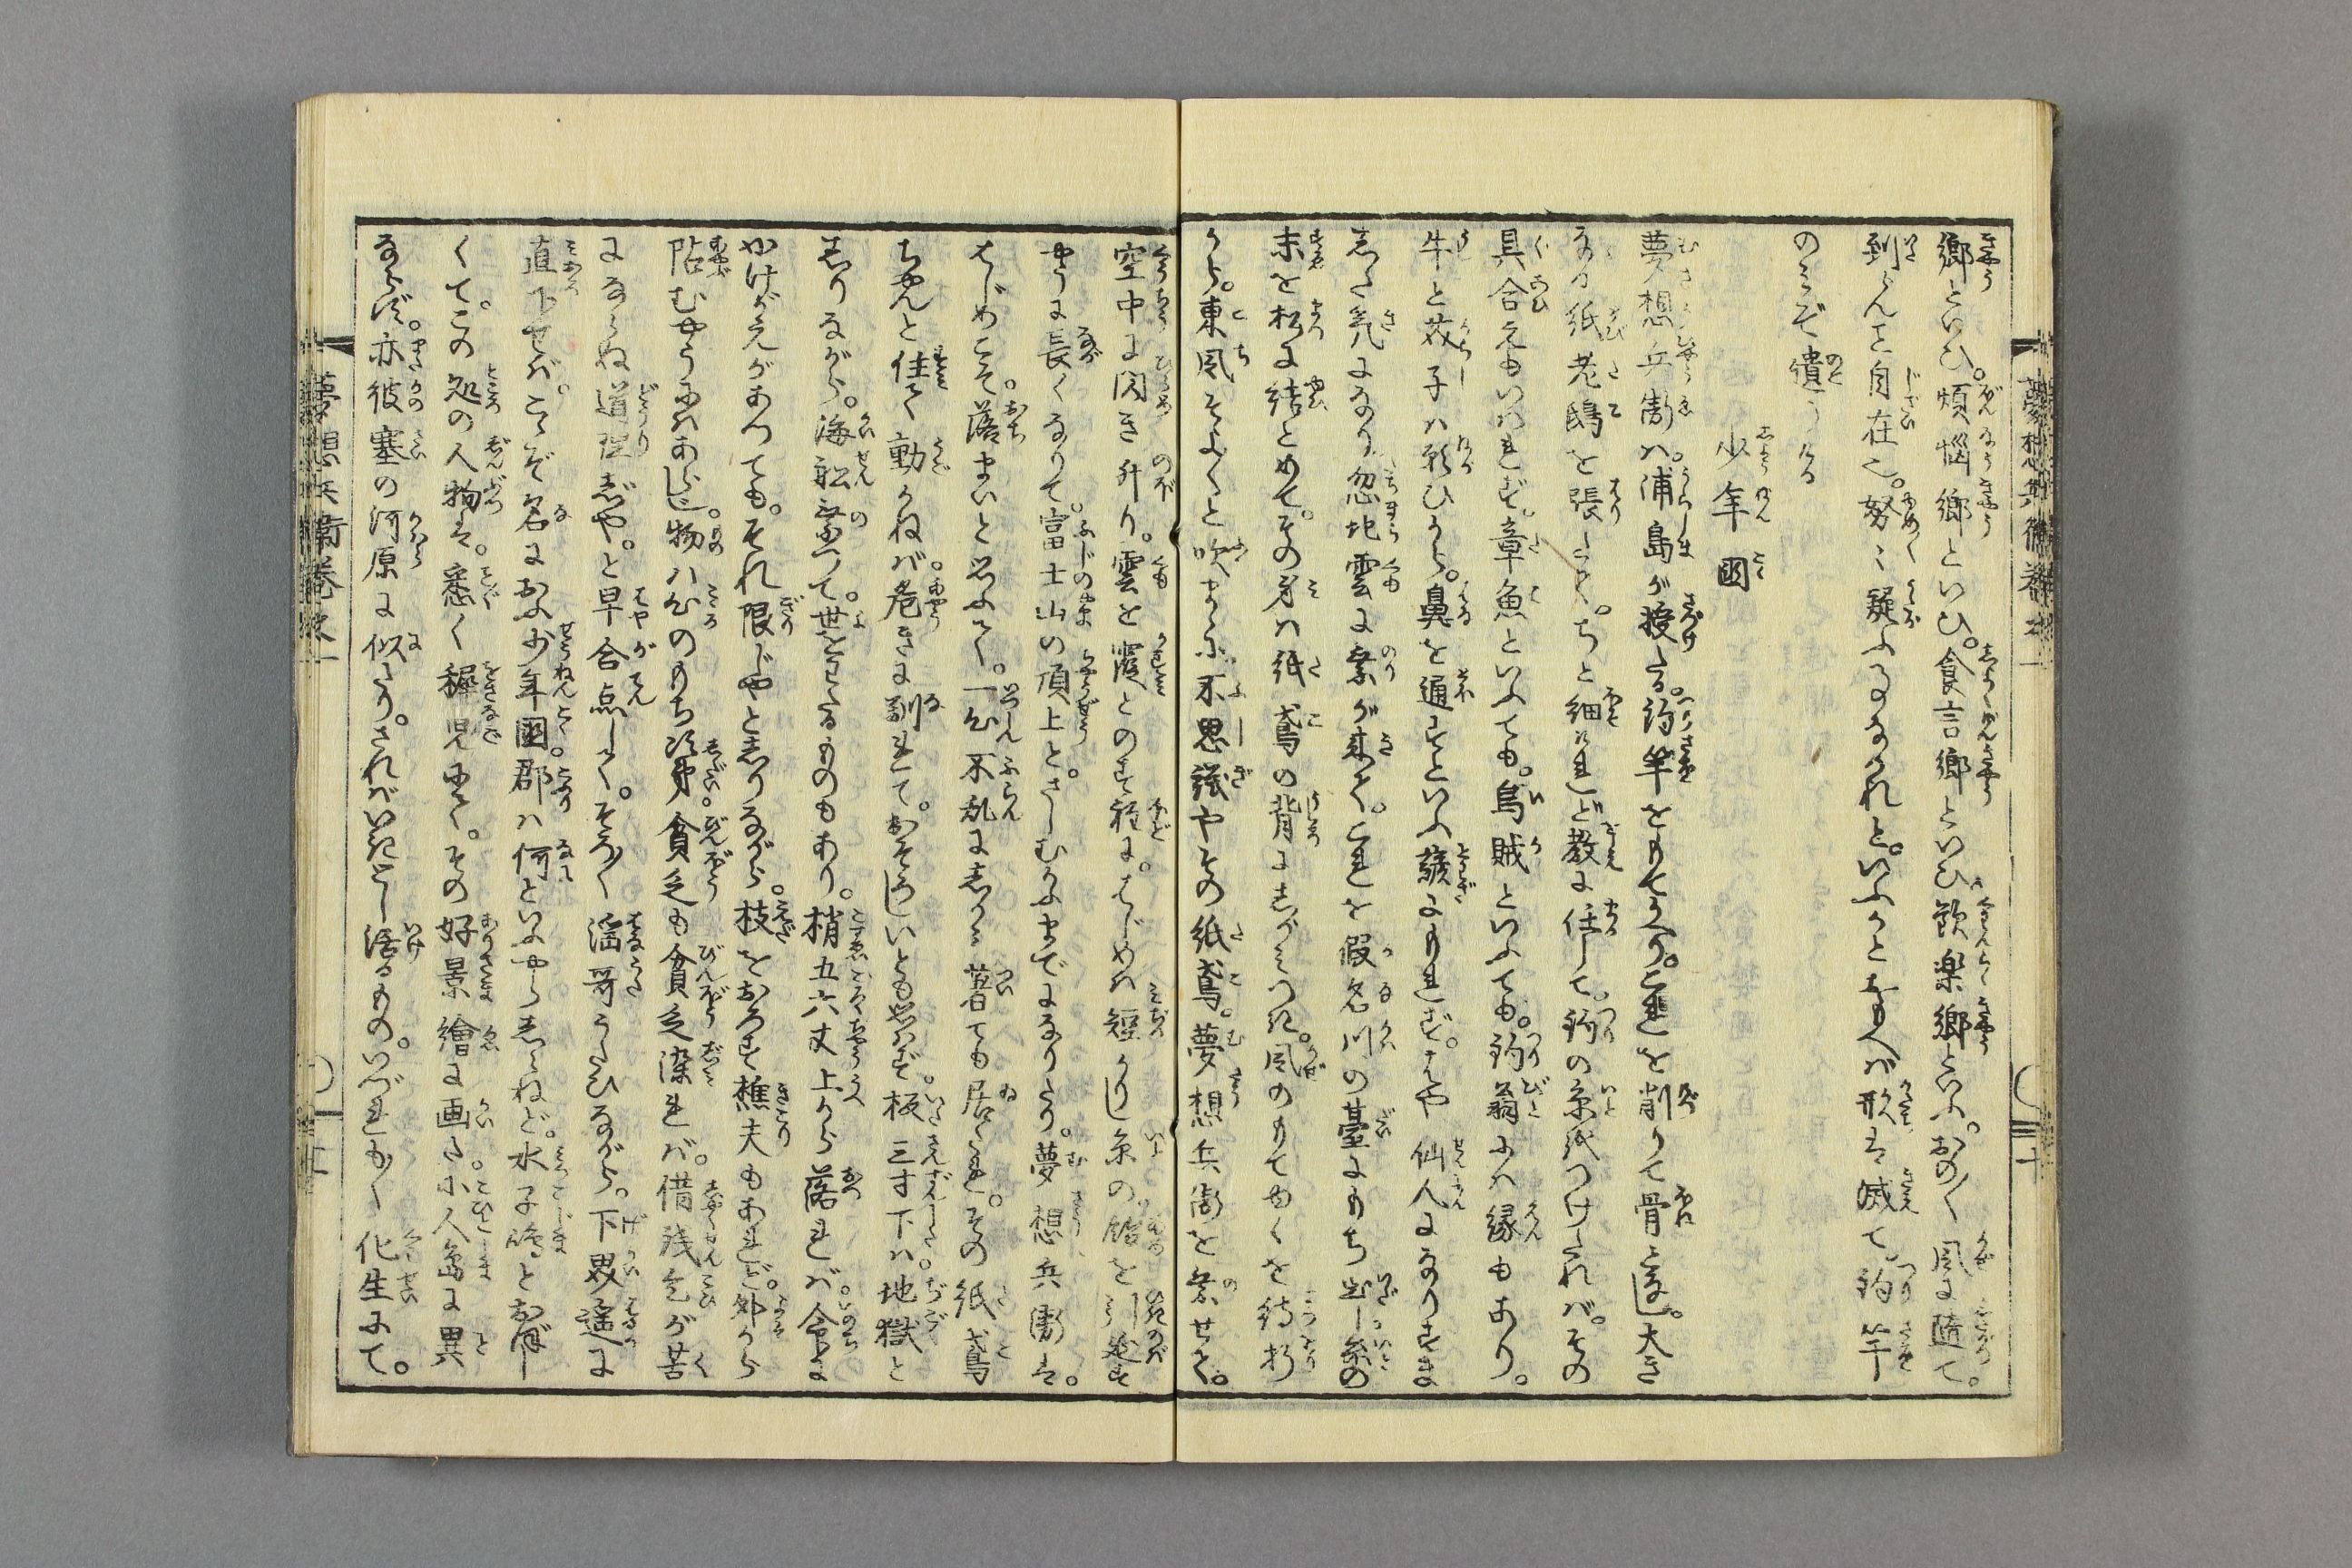 郷といひ。煩悩郷といひ。食言郷といひ。飲楽郷といふ。おの〳〵風に随て。
到らんこと自在也。努々疑ふことなかれと。いふかとおもへば形は滅て。釣竿
のみぞ遺りける
少年国
夢想兵衛は。浦島が授たる。釣竿をもてかへり。これを削りて骨となし。大き
なる紙老鴟を張しに。ちと細けれど教に任して。釣の糸をつけたれば。その
具合えもいはれず。章魚といふても。烏賊といふても。釣翁には縁もあり。
牛と孩子は願ひから。鼻を通すといふ諺にもれず。はや仙人になりすま
した気になり。忽地雲に乗が来て。これを假名川の臺にもち出し。糸の
末を松に結とめて。その身は紙鳶の背にしがみつき。風のもてゆくを待折
から。東風そよ〳〵と吹まゝに。不思議やその紙鳶。夢想兵衛を乗せて。
空中に閃き升り。雲を霞とのす程に。はじめは短かりし糸の。飴を引延す
やうに長くなりて。富士山の頂上と。さしむかふまでになりたり。夢想兵衛は。
はじめこそ。落まいと思ふて。一心不乱にしがみ着ても居たれ。その紙鳶
ちやんと住て動かねば。危きに馴れて。おそろしいとも思はず。板三寸下は。地獄と
しりながら。海舩に乗つて。世をわたるものもあり。梢五六丈上から落れば。命に
かけがえがあつても。それ限じやとしりながら。枝をおろす樵夫もあれど。外から
詠むやうにはあらじ。物は心のもち次第。貧乏も貧乏染れば。借残乞が苦
にならぬ道理じや。と早合点して。そろ〳〵謡哥うたひながら。下界遙に
直下せば。こゝぞ名におふ少年国。郡は何といふやらしらねど。水子嶋とおぼし
くて。この処の人物は。悉く穉児にて。その好景繪に画た。小人島に異
ならず。亦彼塞の河原に似たり。されどいきとし活るもの。いづれも〳〵化生にて。
夢想兵衛巻之一